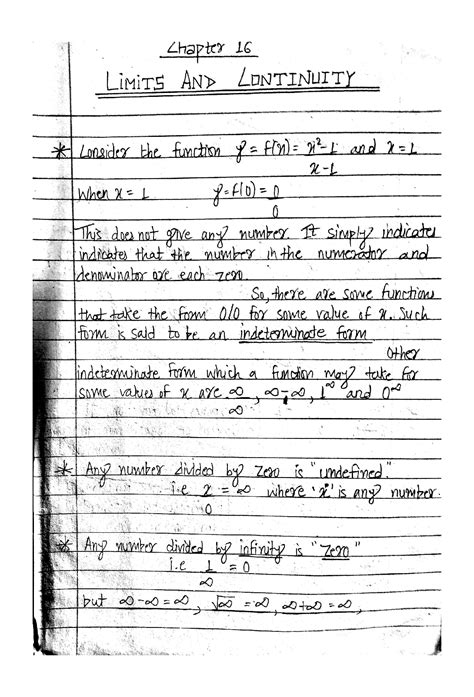 Chapter 16
LIMITS AND CONTINUITY
* Consider the function y = f(x) = x²-1 and x = 1
x-1
When x = 1 y = f(0) = 0
0
This does not give any number. It simply indicates
indicates that the number in the numerator and
denominator are each zero.
So, there are some functions
that take the form 0/0 for some value of x. Such
form is said to be an indeterminate form
Other
indeterminate form which a function may take for
some values of x are ∞, ∞-∞, 1^∞ and 0^∞
∞
* Any number divided by zero is "undefined."
i.e x = ∞ where 'x' is any number.
0
* Any number divided by infinity is "zero"
i.e 1 = 0
∞
but ∞-∞ = ∞, √∞ = ∞, ∞+∞ = ∞,